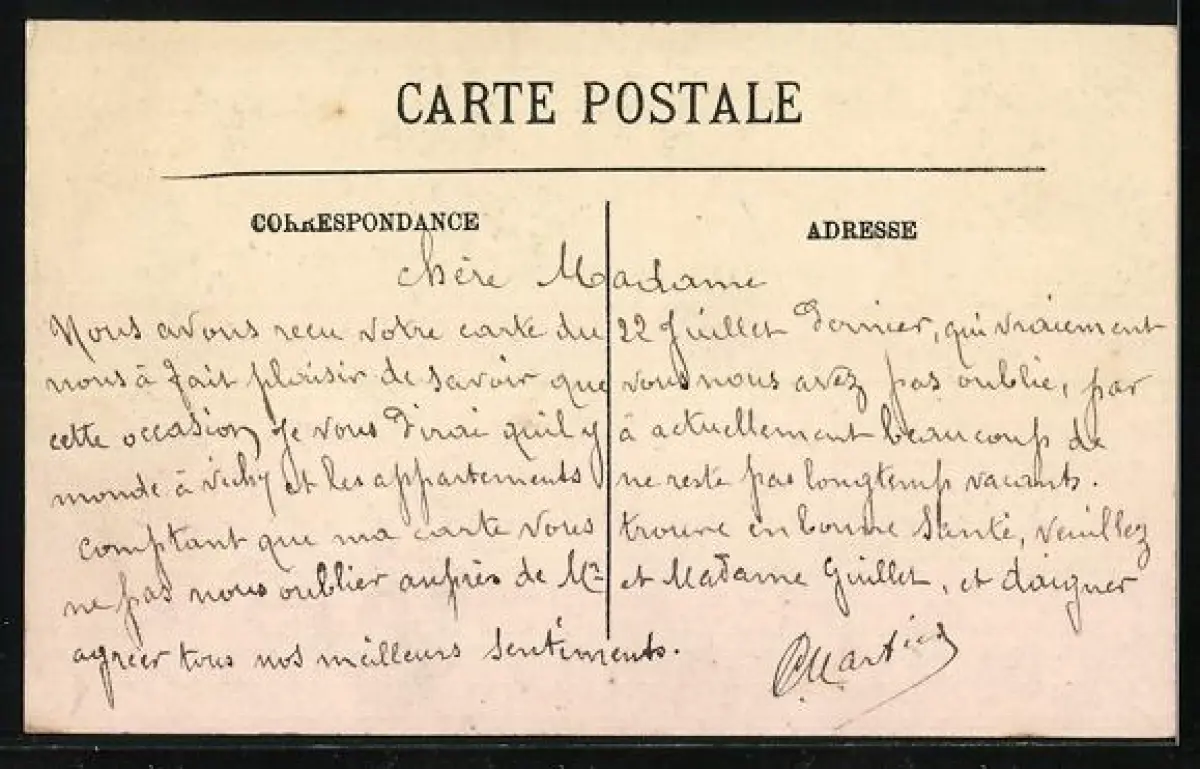 CARTE POSTALE
CORRESPONDANCE
ADRESSE
chère Madame
Nous avons recu votre carte du 22 Juillet dernier, qui vraiement
nous à fait plaisir de savoir que vous nous avez pas oublié, par
cette occasion, Je vous dirai qu'il y à actuellement beaucoup de
monde à Vichy et les appartements ne reste pas longtemp vacants.
comptant que ma carte vous trouve en bonne Santé, veuillez
ne pas nous oublier auprès de Mr et Madame Guillet, et daigner
agréer tous nos meilleurs sentiments.